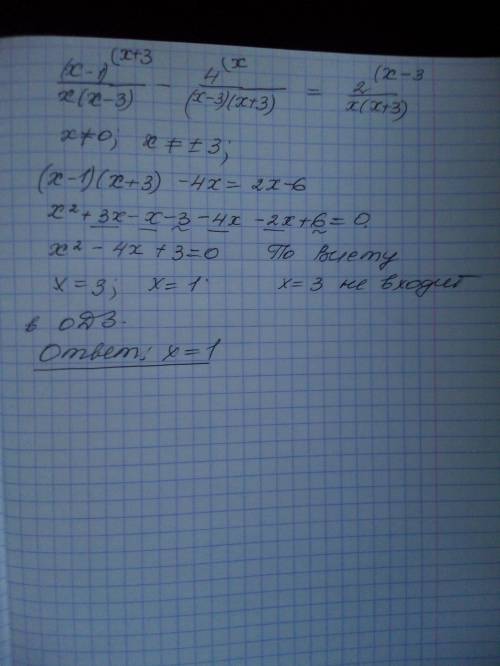 (x-1)^(x+3 / x(x-3) - 4^(x / (x-3)(x+3) = 2^(x-3 / x(x+3)
x≠0; x≠±3;
(x-1)(x+3) -4x = 2x-6
x²+3x-x-3-4x-2x+6=0
x²-4x+3=0 По Виету
x=3; x=1 x=3 не входит
в ОДЗ.
Ответ: x=1